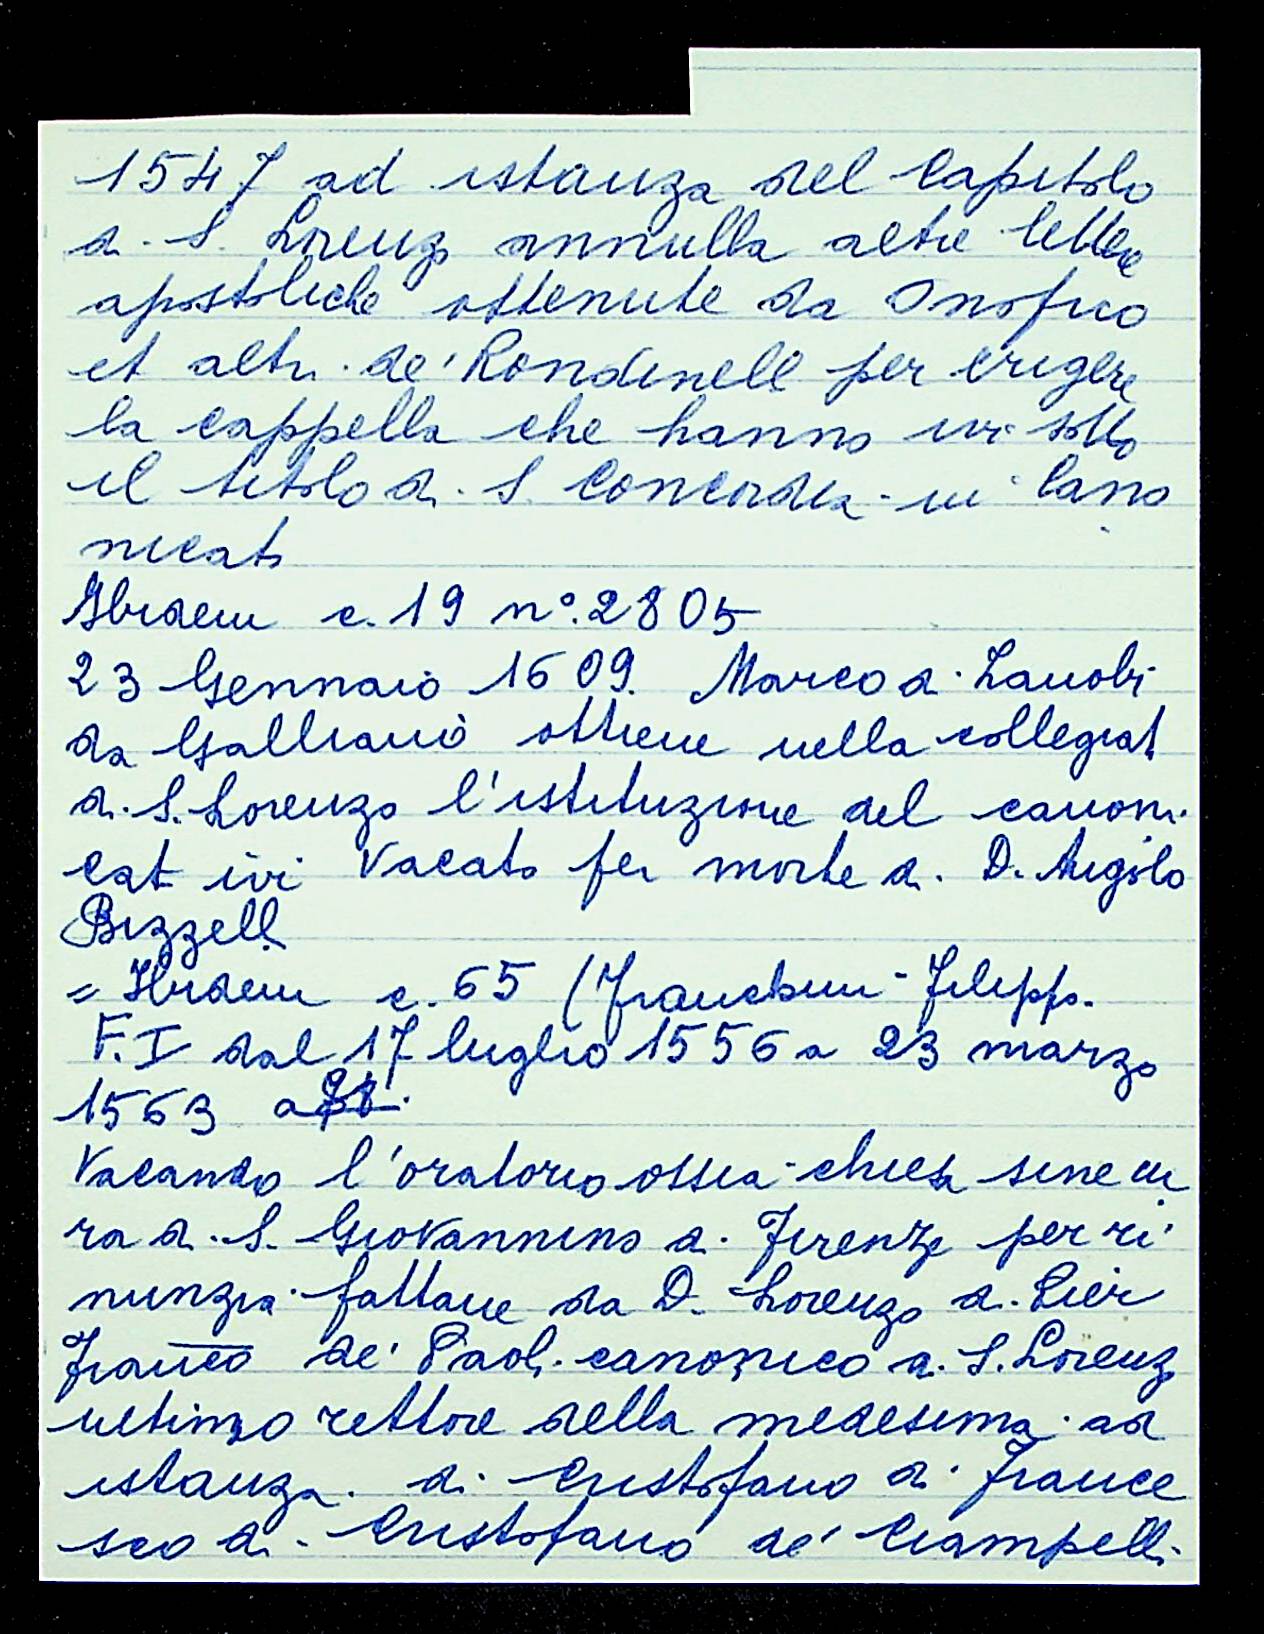 1547 ad istanza del Capitolo
di S. Lorenzo annulla altre lettere
apostoliche ottenute da Onofrio
et altri de' Rondinelli per erigere
la cappella che hanno ivi sotto
il titolo di S. Concordia in Cano
nicato
Ibidem c. 19 n°. 2805
23 Gennaio 1609. Marco di Zanobi
da Galliano ottiene nella collegiat
di S. Lorenzo l'istituzione del canoni
cat ivi vacato per morte di D.
Bizzelli
= Ibidem c. 65 (Franchini Filippo.
F. I dal 17 luglio 1556 a 23 marzo
1563 a
Vacando l'oratorio ossia chiesa sine cu
ra di S. Giovannino di Firenze per ri
nunzia fattane da D. Lorenzo di Pier
Franco de' Paoli canonico di S. Lorenzo
ultimo rettore della medesima ad
istanza di Cristofano di France
sco di Cristofano de' Ciampelli